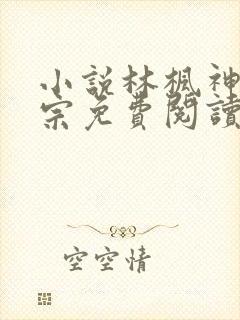 小說林楓神
宗免費閱讀
空空情